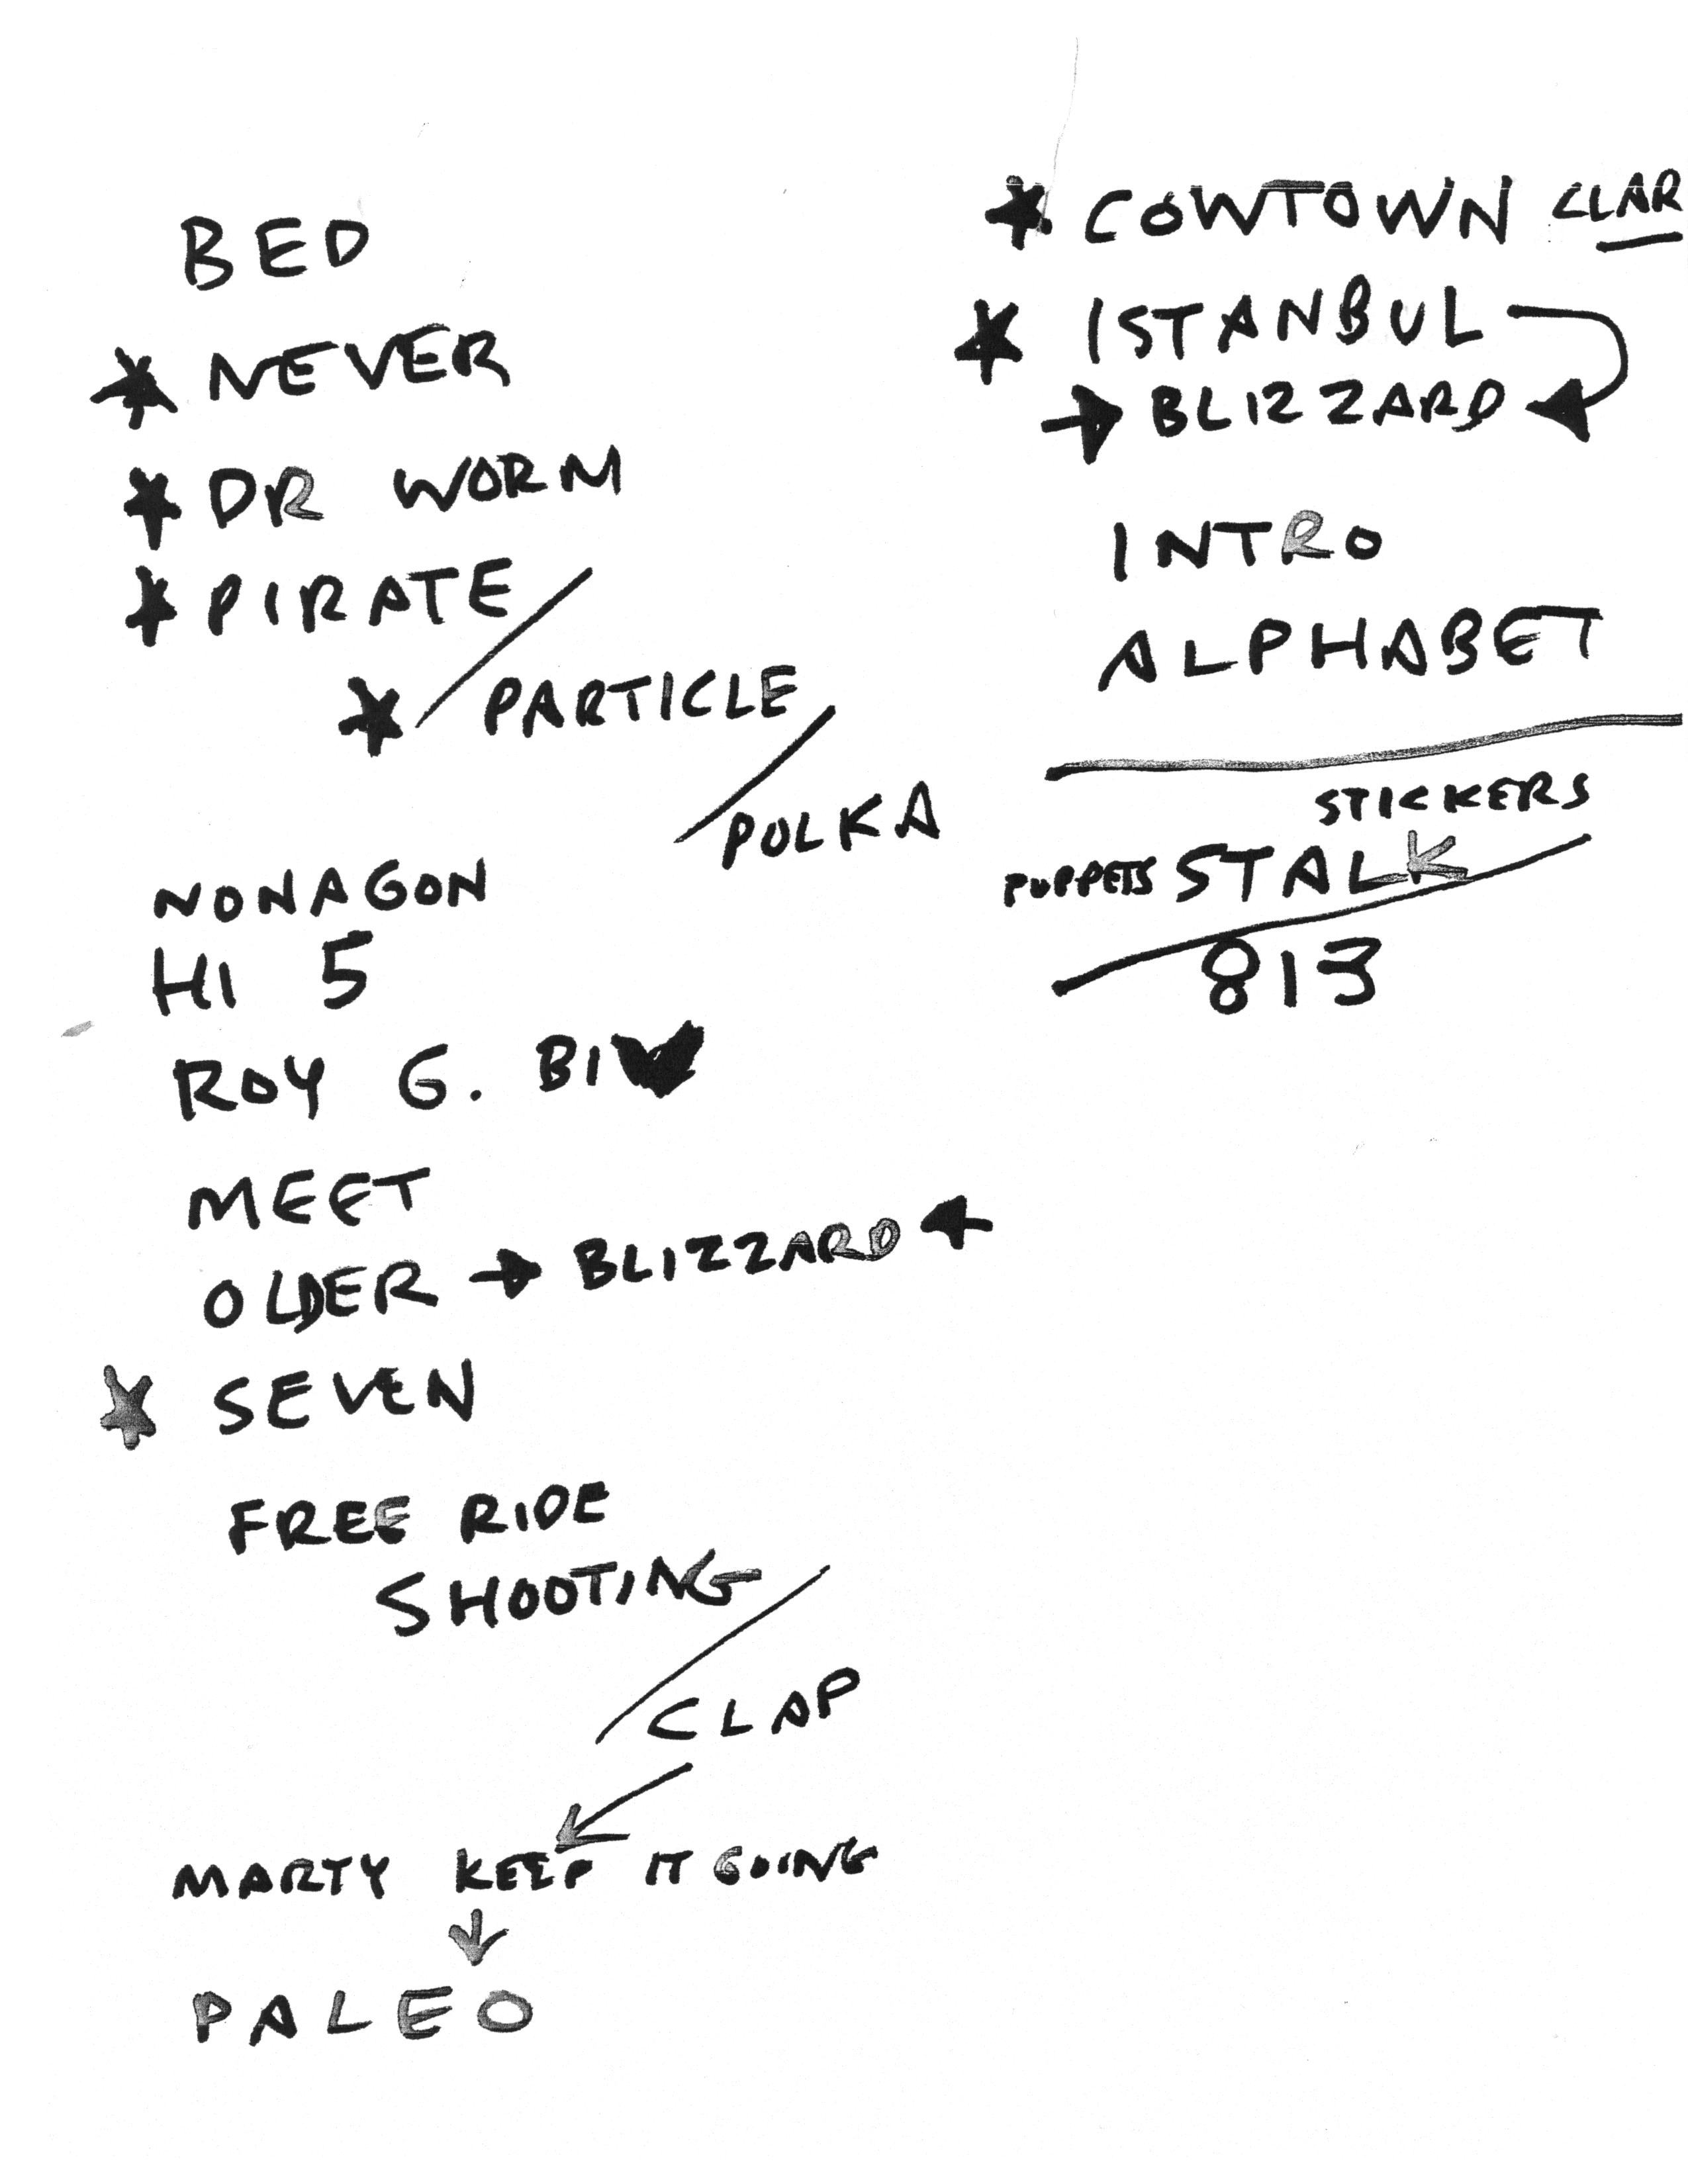 BED
NEVER
DR WORM
PIRATE
PARTICLE
POLKA
NONAGON
HI 5
ROY G. BIV
MEET
OLDER → BLIZZARD ←
SEVEN
FREE RIDE
SHOOTING
CLAP
MARTY KEEP IT GOING
PALEO
COWTOWN CLAR
ISTANBUL
→ BLIZZARD
INTRO
ALPHABET
STICKERS
PUPPETS STALK
813